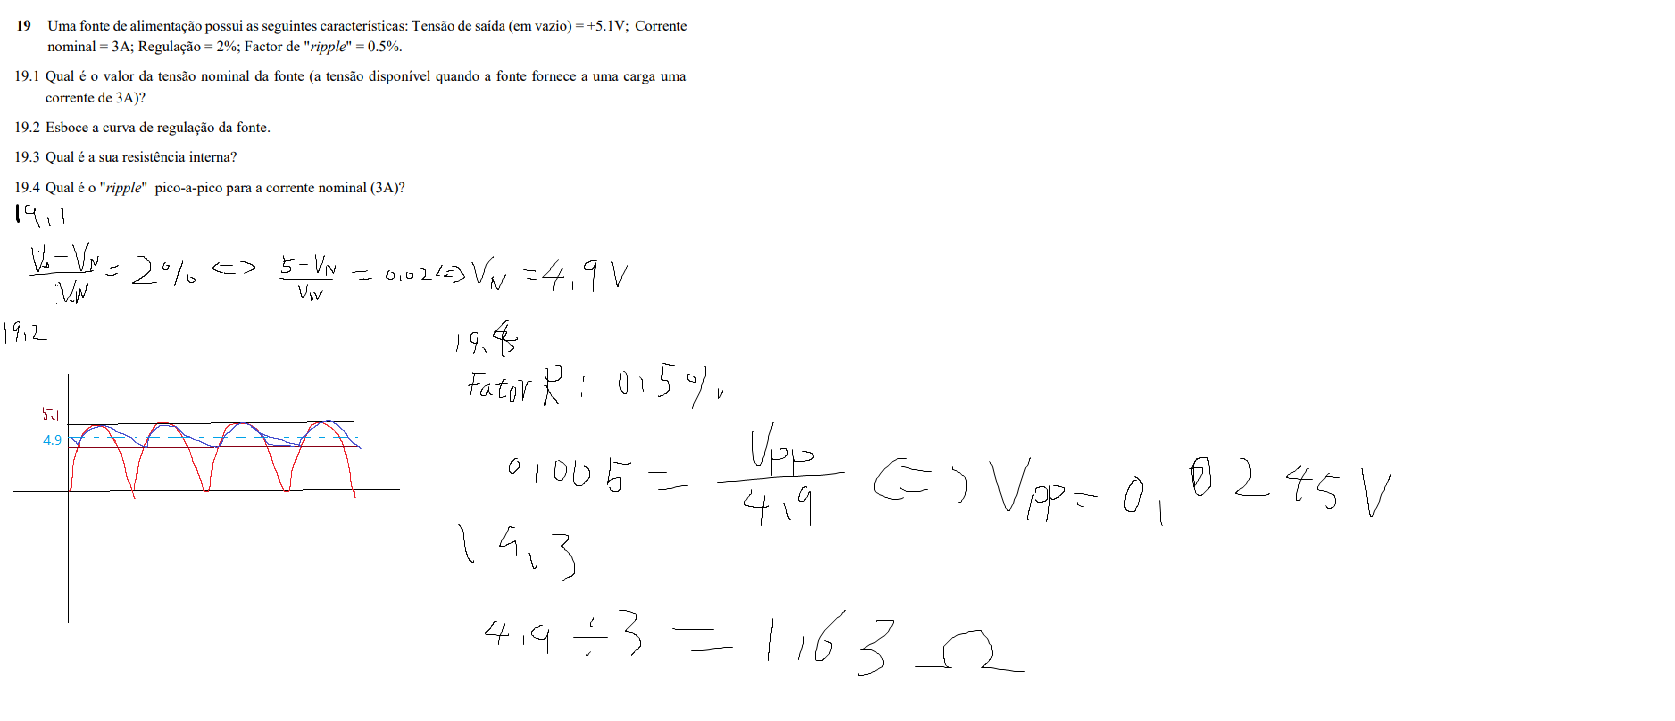 19 Uma fonte de alimentação possui as seguintes características: Tensão de saída (em vazio) = +5.1V; Corrente
nominal = 3A; Regulação = 2%; Factor de "ripple" = 0.5%.
19.1 Qual é o valor da tensão nominal da fonte (a tensão disponível quando a fonte fornece a uma carga uma
corrente de 3A)?
19.2 Esboce a curva de regulação da fonte.
19.3 Qual é a sua resistência interna?
19.4 Qual é o "ripple" pico-a-pico para a corrente nominal (3A)?
19,1
V₀-V_N/V_N = 2% <=> 5-V_N/V_N = 0,02 <=> V_N = 4,9 V
19,2
5.1
4.9
19,4
Fator R: 0,5%
0,005 = Vpp/4,9 <=> Vpp = 0,0245V
19,3
4,9 ÷ 3 = 1,63 Ω